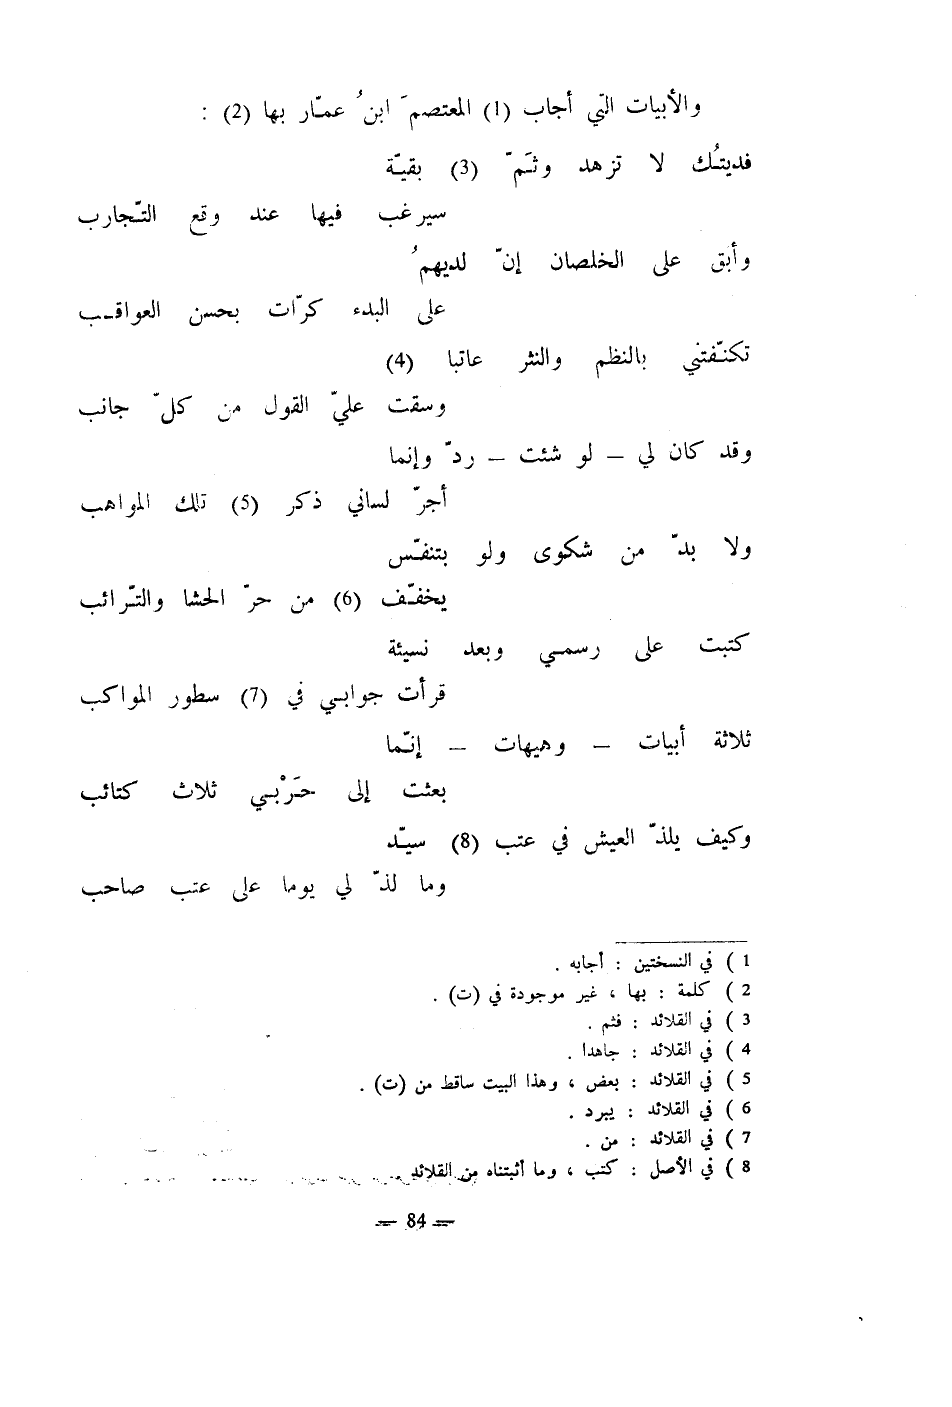 والأبيات التي أجاب (1) المعتصمَ ابنُ عمّار بها (2) :
فديتُك لا تزهد وثَمّ (3) بقيّة
سيرغب فيها عند وقع التّجارب
وأبق على الخلصان إنّ لديهمُ
على البدء كرّات بحسن العواقـب
تكنّفتني بالنظم والنثر عاتبا (4)
وسقت عليّ القول من كلّ جانب
وقد كان لي – لو شئت – ردّ وإنما
أجرّ لساني ذكر (5) تلك المواهب
ولا بدّ من شكوى ولو بتنفّس
يخفّف (6) من حرّ الحشا والتّرائب
كتبت على رسمي وبعد نسيئة
قرأت جوابي في (7) سطور المواكب
ثلاثة أبيات – وهيهات – إنّما
بعثت إلى حَرْبي ثلاث كتائب
وكيف يلذّ العيش في عتب (8) سيّد
وما لذّ لي يوما على عتب صاحب
1 ) في النسختين : أجابه .
2 ) كلمة : بها ، غير موجودة في (ت) .
3 ) في القلائد : فثم .
4 ) في القلائد : جاهدا .
5 ) في القلائد : بعض ، وهذا البيت ساقط من (ت) .
6 ) في القلائد : يبرد .
7 ) في القلائد : من .
8 ) في الأصل : كتب ، وما أثبتناه من القلائد .
= 84 =